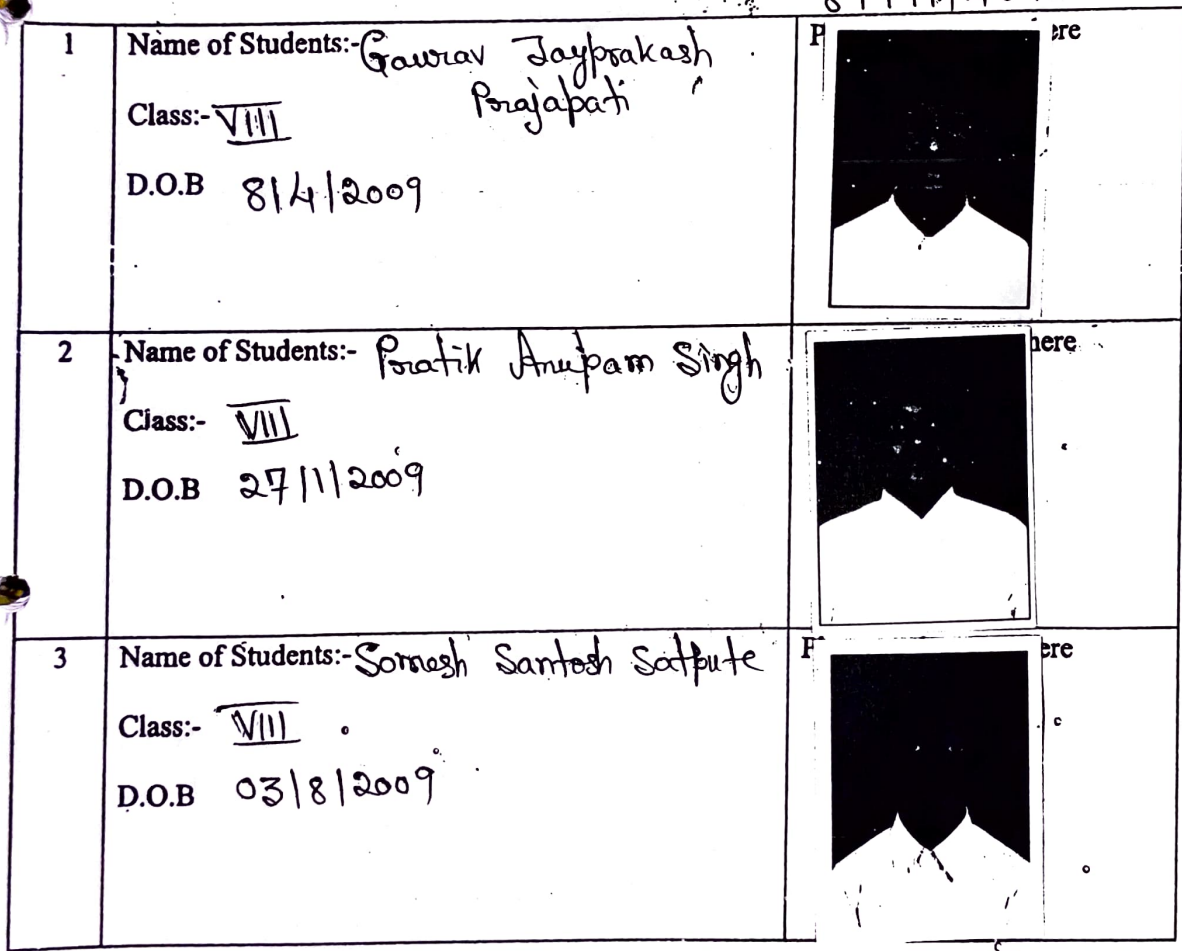 1 Name of Students:- Gaurav Jayprakash P ere
Prajapati
Class:- VIII
D.O.B 8/4/2009
2 Name of Students:- Pratik Anupam Singh here
Class:- VIII
D.O.B 27/1/2009
3 Name of Students:- Somesh Santosh Satpute P ere
Class:- VIII
D.O.B 03/8/2009